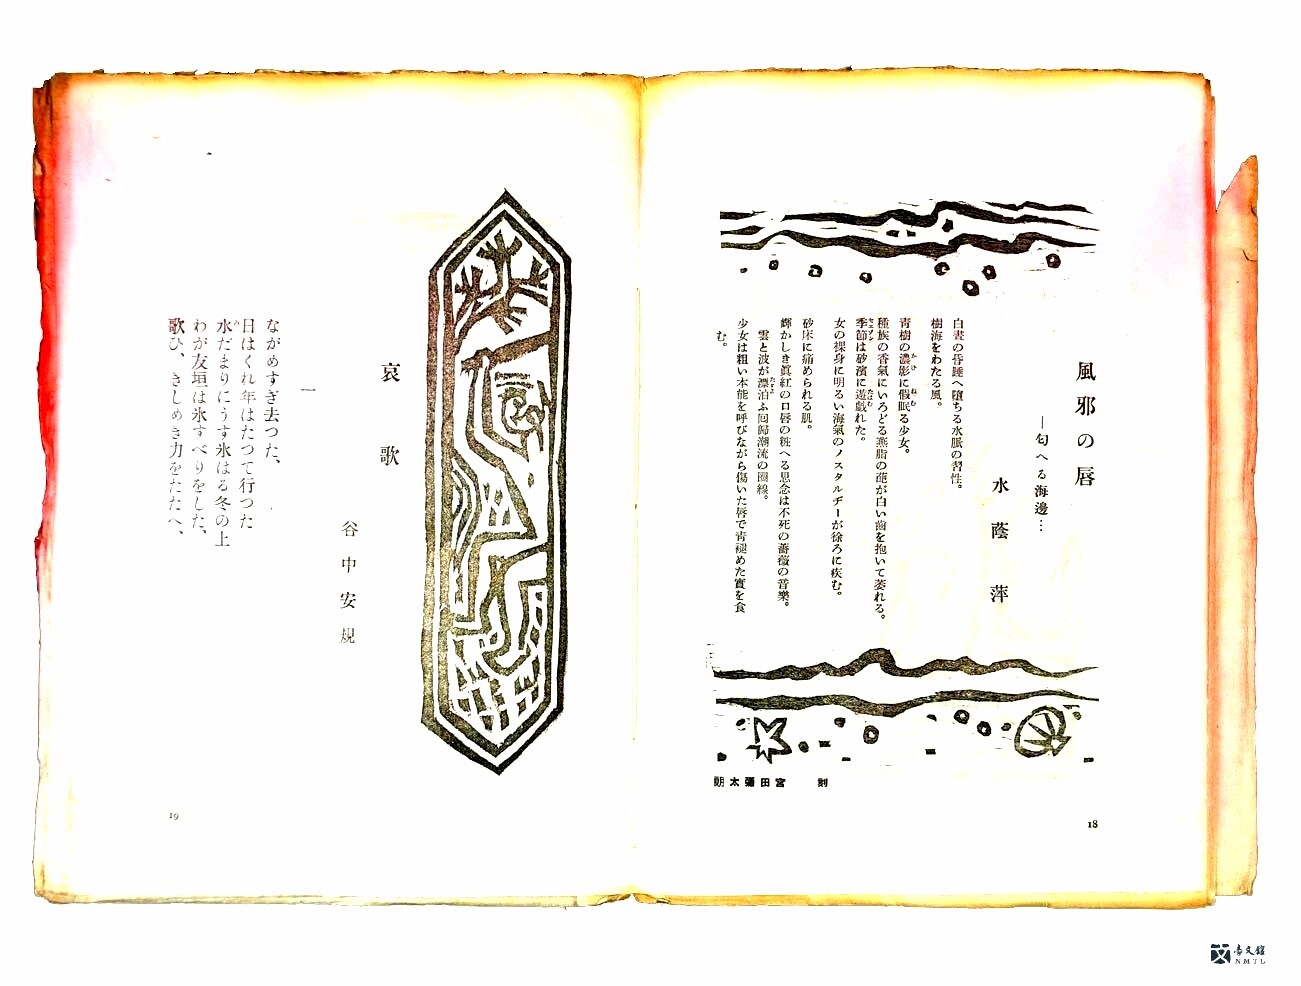 風邪の唇
―匂へる海邊…
水蔭萍
白晝の昏睡へ墮ちる水脈の習性。
樹海をわたる風。
靑樹の濃影に假眠る少女。
種族の香氣にいろどる燕脂の葩が白い齒を抱いて萎れる。
季節は砂濱に遊戲れた。
女の裸身に明るい海氣のノスタルヂーが徐ろに疾む。
砂床に痛められる肌。
輝かしき眞紅の口唇の粧へる思念は不死の薔薇の音樂。
雲と波が漂泊ふ囘歸潮流の圈線。
少女は粗い本能を呼びながら傷いた唇で靑褪めた實を食
む。
刻 宮田彌太朗
18
哀歌
谷中安規
一
ながめすぎ去つた、
日はくれ年はたつて行つた
水だまりにうす氷はる冬の上
わが友垣は氷すべりをした、
歌ひ、きしめき力をたたへ、
19
臺文館
NMTL